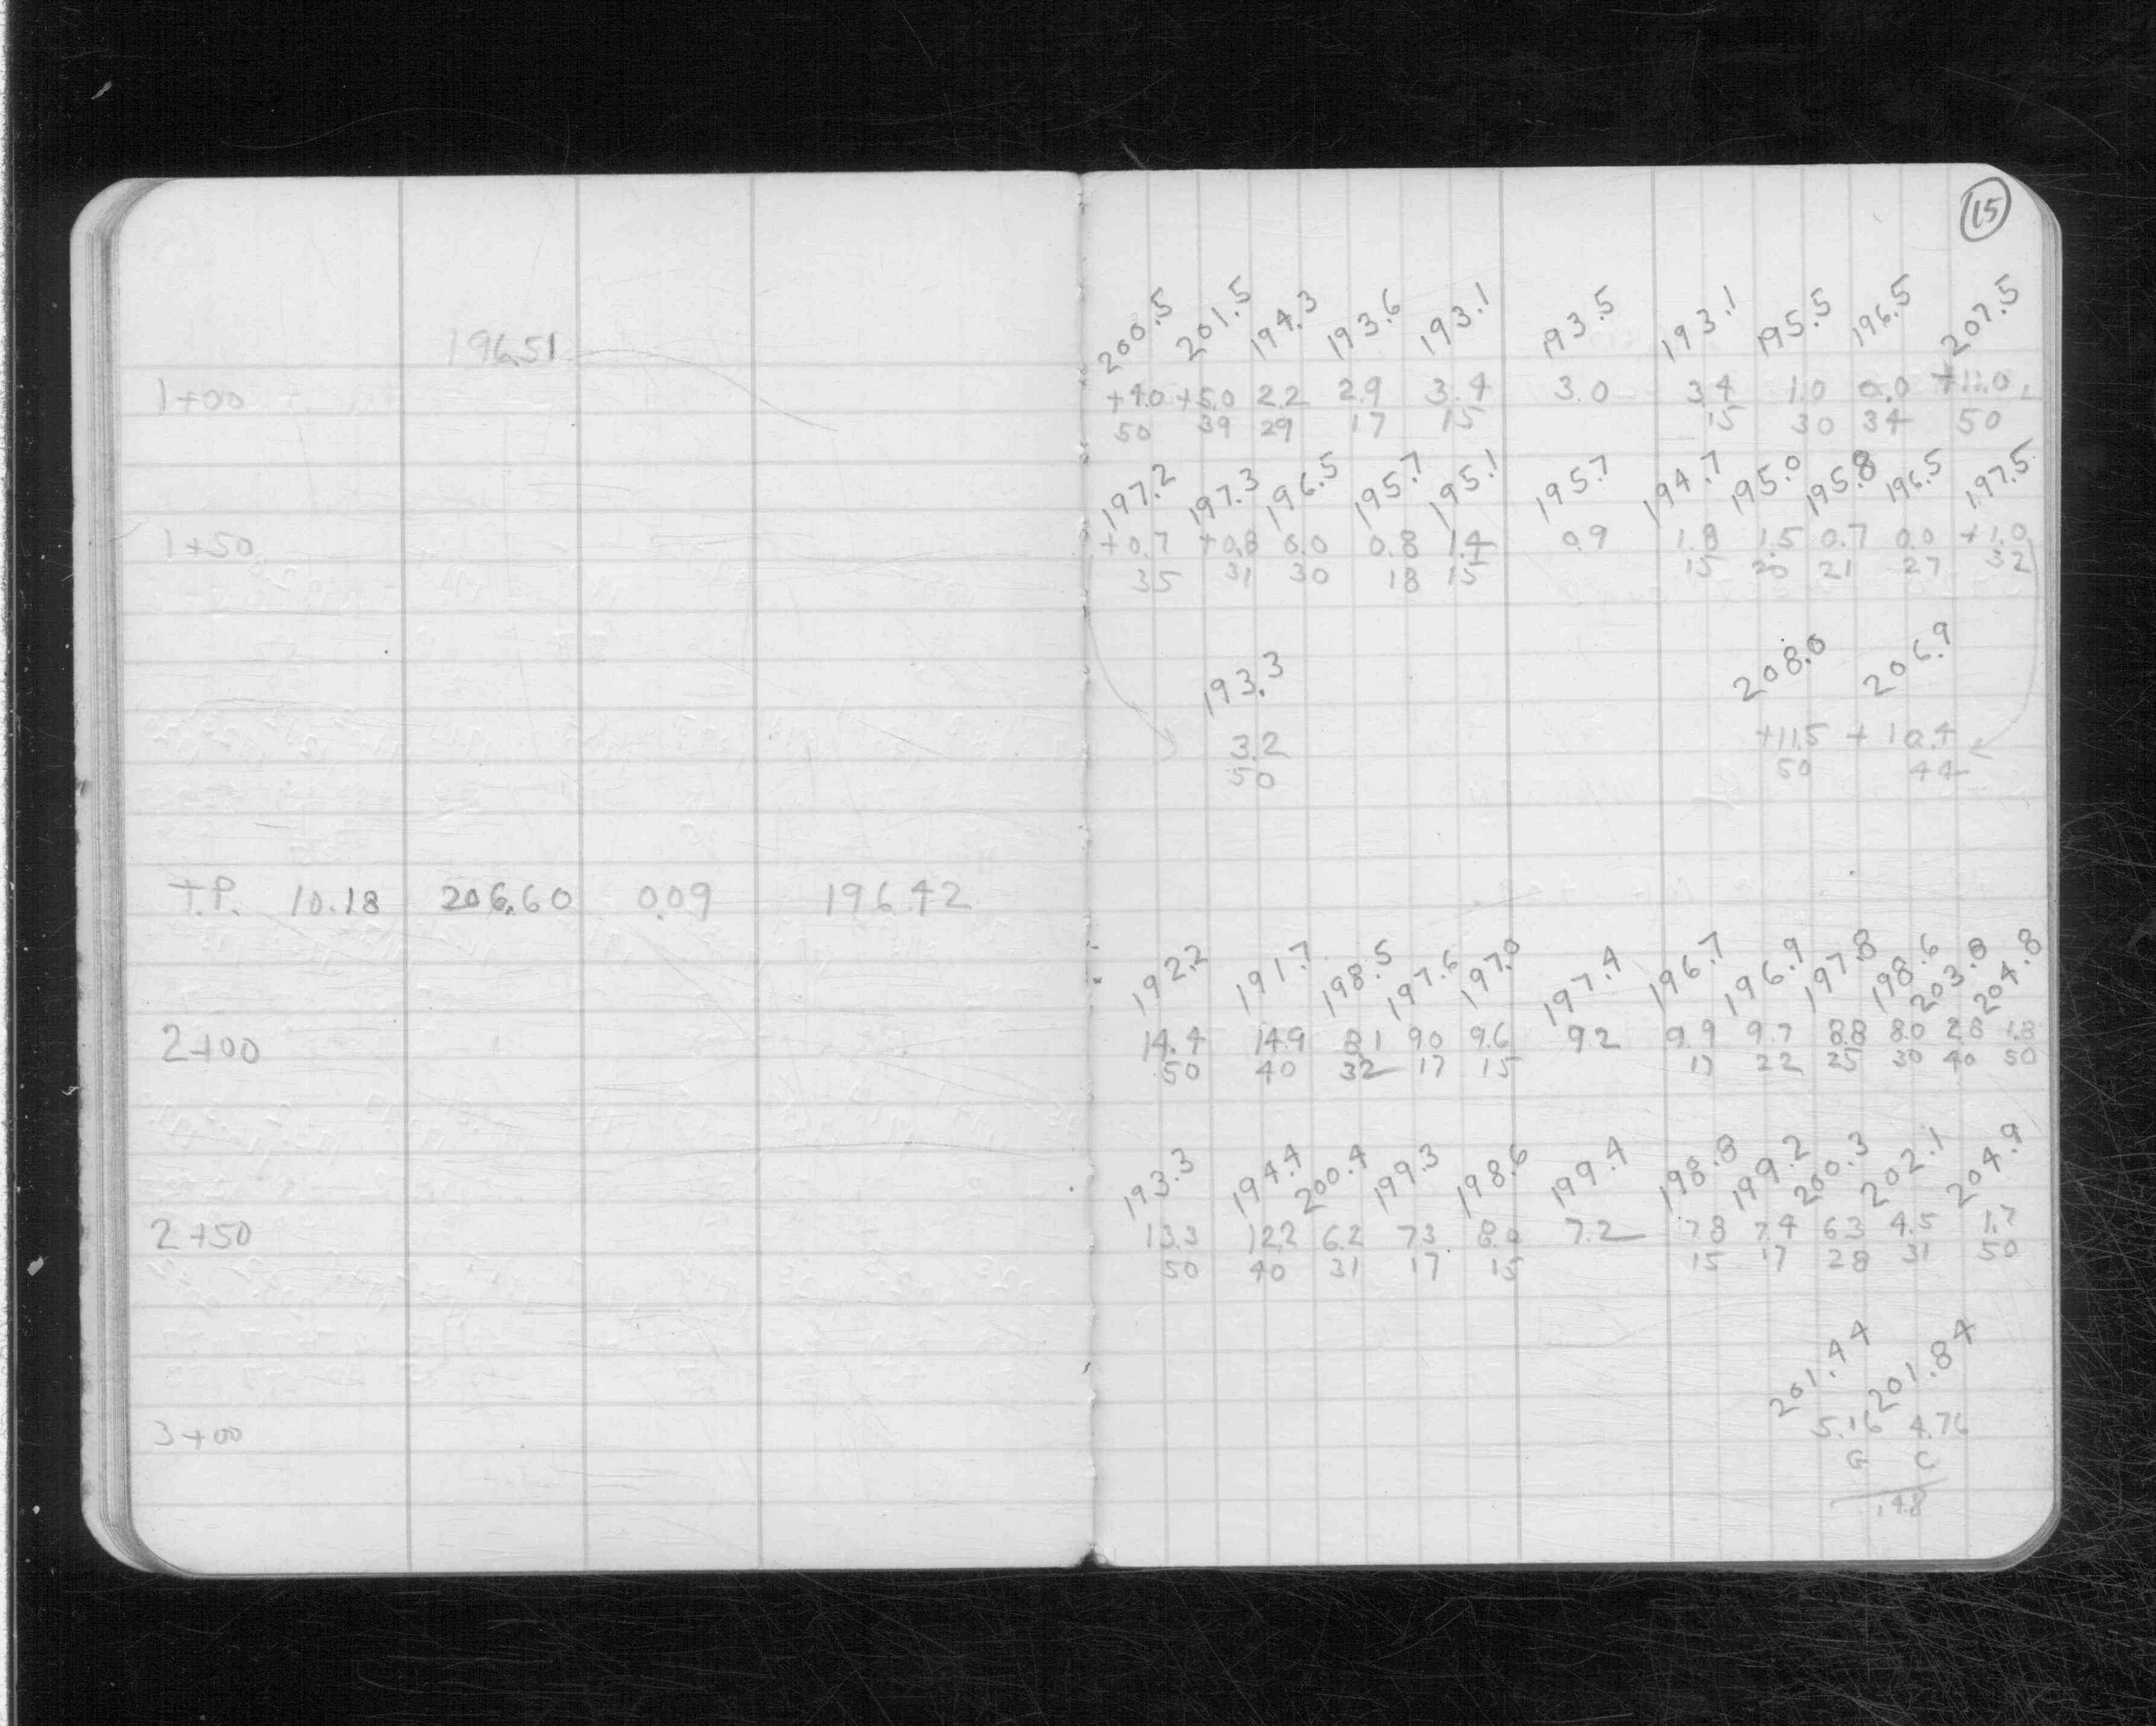 15
200.5 201.5 194.3 193.6 193.1 193.5 193.1 195.5 196.5 207.5
196.51
1+00 +4.0 +5.0 2.2 2.9 3.4 3.0 3.4 1.0 0.0 +11.0
50 39 29 17 15 15 30 34 50
197.2 197.3 196.5 195.7 195.1 195.7 194.7 195.0 195.8 196.5 197.5
1+50 +0.7 +0.8 0.0 0.8 1.4 0.9 1.8 1.5 0.7 0.0 +1.0
35 31 30 18 15 15 20 21 27 32
193.3 208.0 206.9
3.2 +11.5 +10.4
50 50 44
T.P. 10.18 206.60 0.09 196.42
192.2 191.7 198.5 197.6 197.0 197.4 196.7 196.9 197.8 198.6 203.8 204.8
2+00 14.4 14.9 8.1 9.0 9.6 9.2 9.9 9.7 8.8 8.0 2.8 1.8
50 40 32 17 15 17 22 25 30 40 50
193.3 194.4 200.4 199.3 198.6 199.4 198.8 199.2 200.3 202.1 204.9
2+50 13.3 12.2 6.2 7.3 8.0 7.2 7.8 7.4 6.3 4.5 1.7
50 40 31 17 15 15 17 28 31 50
201.44 201.84
3+00 5.16 4.76
G C
14.8